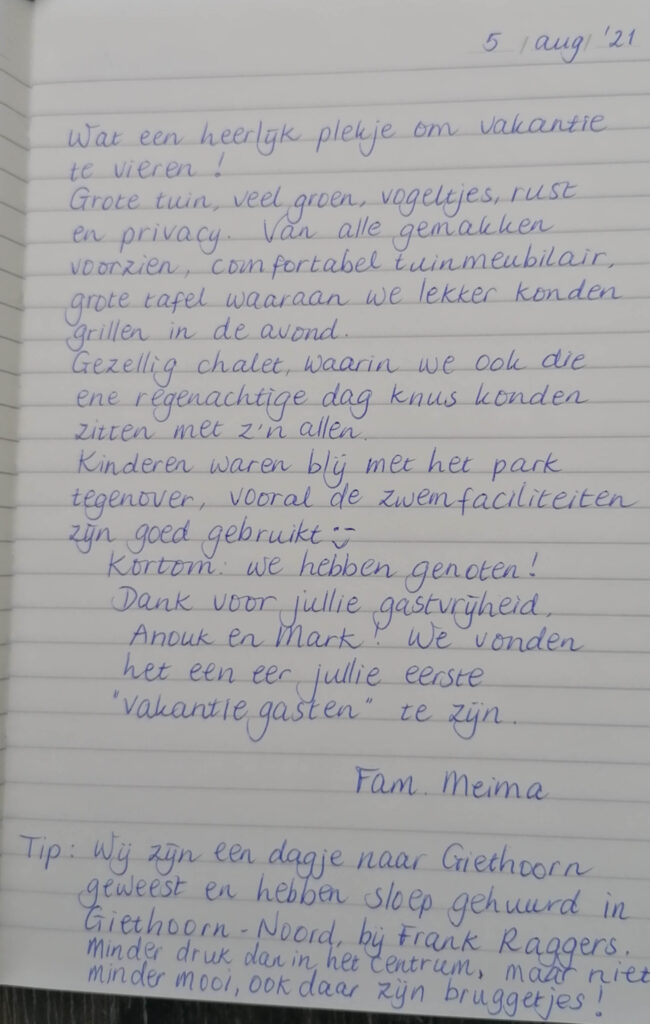 5 / aug / '21
Wat een heerlijk plekje om vakantie
te vieren !
Grote tuin, veel groen, vogeltjes, rust
en privacy. Van alle gemakken
voorzien, comfortabel tuinmeubilair,
grote tafel waaraan we lekker konden
grillen in de avond.
Gezellig chalet, waarin we ook die
ene regenachtige dag knus konden
zitten met z'n allen.
Kinderen waren blij met het park
tegenover, vooral de zwemfaciliteiten
zijn goed gebruikt :-)
Kortom: we hebben genoten!
Dank voor jullie gastvrijheid,
Anouk en Mark! We vonden
het een eer jullie eerste
"vakantie gasten" te zijn.
Fam. Meima
Tip: Wij zijn een dagje naar Giethoorn
geweest en hebben sloep gehuurd in
Giethoorn - Noord, bij Frank Raggers.
Minder druk dan in het centrum, maar niet
minder mooi, ook daar zijn bruggetjes!